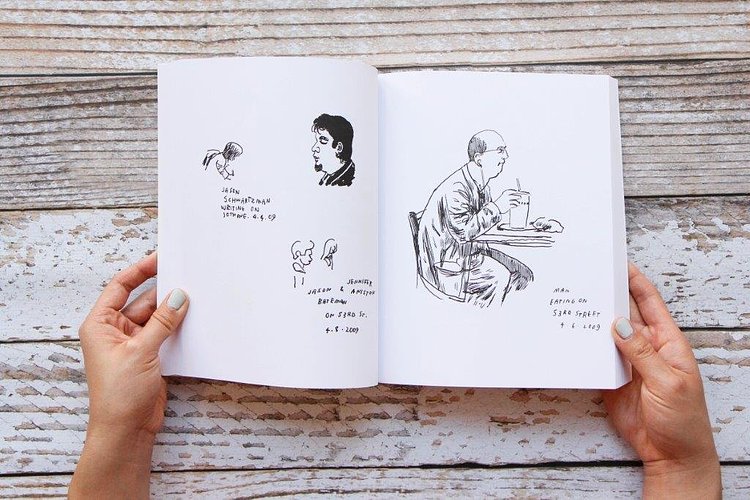 JASON
SCHWARTZMAN
WRITING ON
10TH AVE. 4.4.09
JENNIFER
JASON & ANISTON
BATEMAN
ON 53RD ST.
4.8.2009
MAN
EATING ON
53RD STREET
4 6 2009